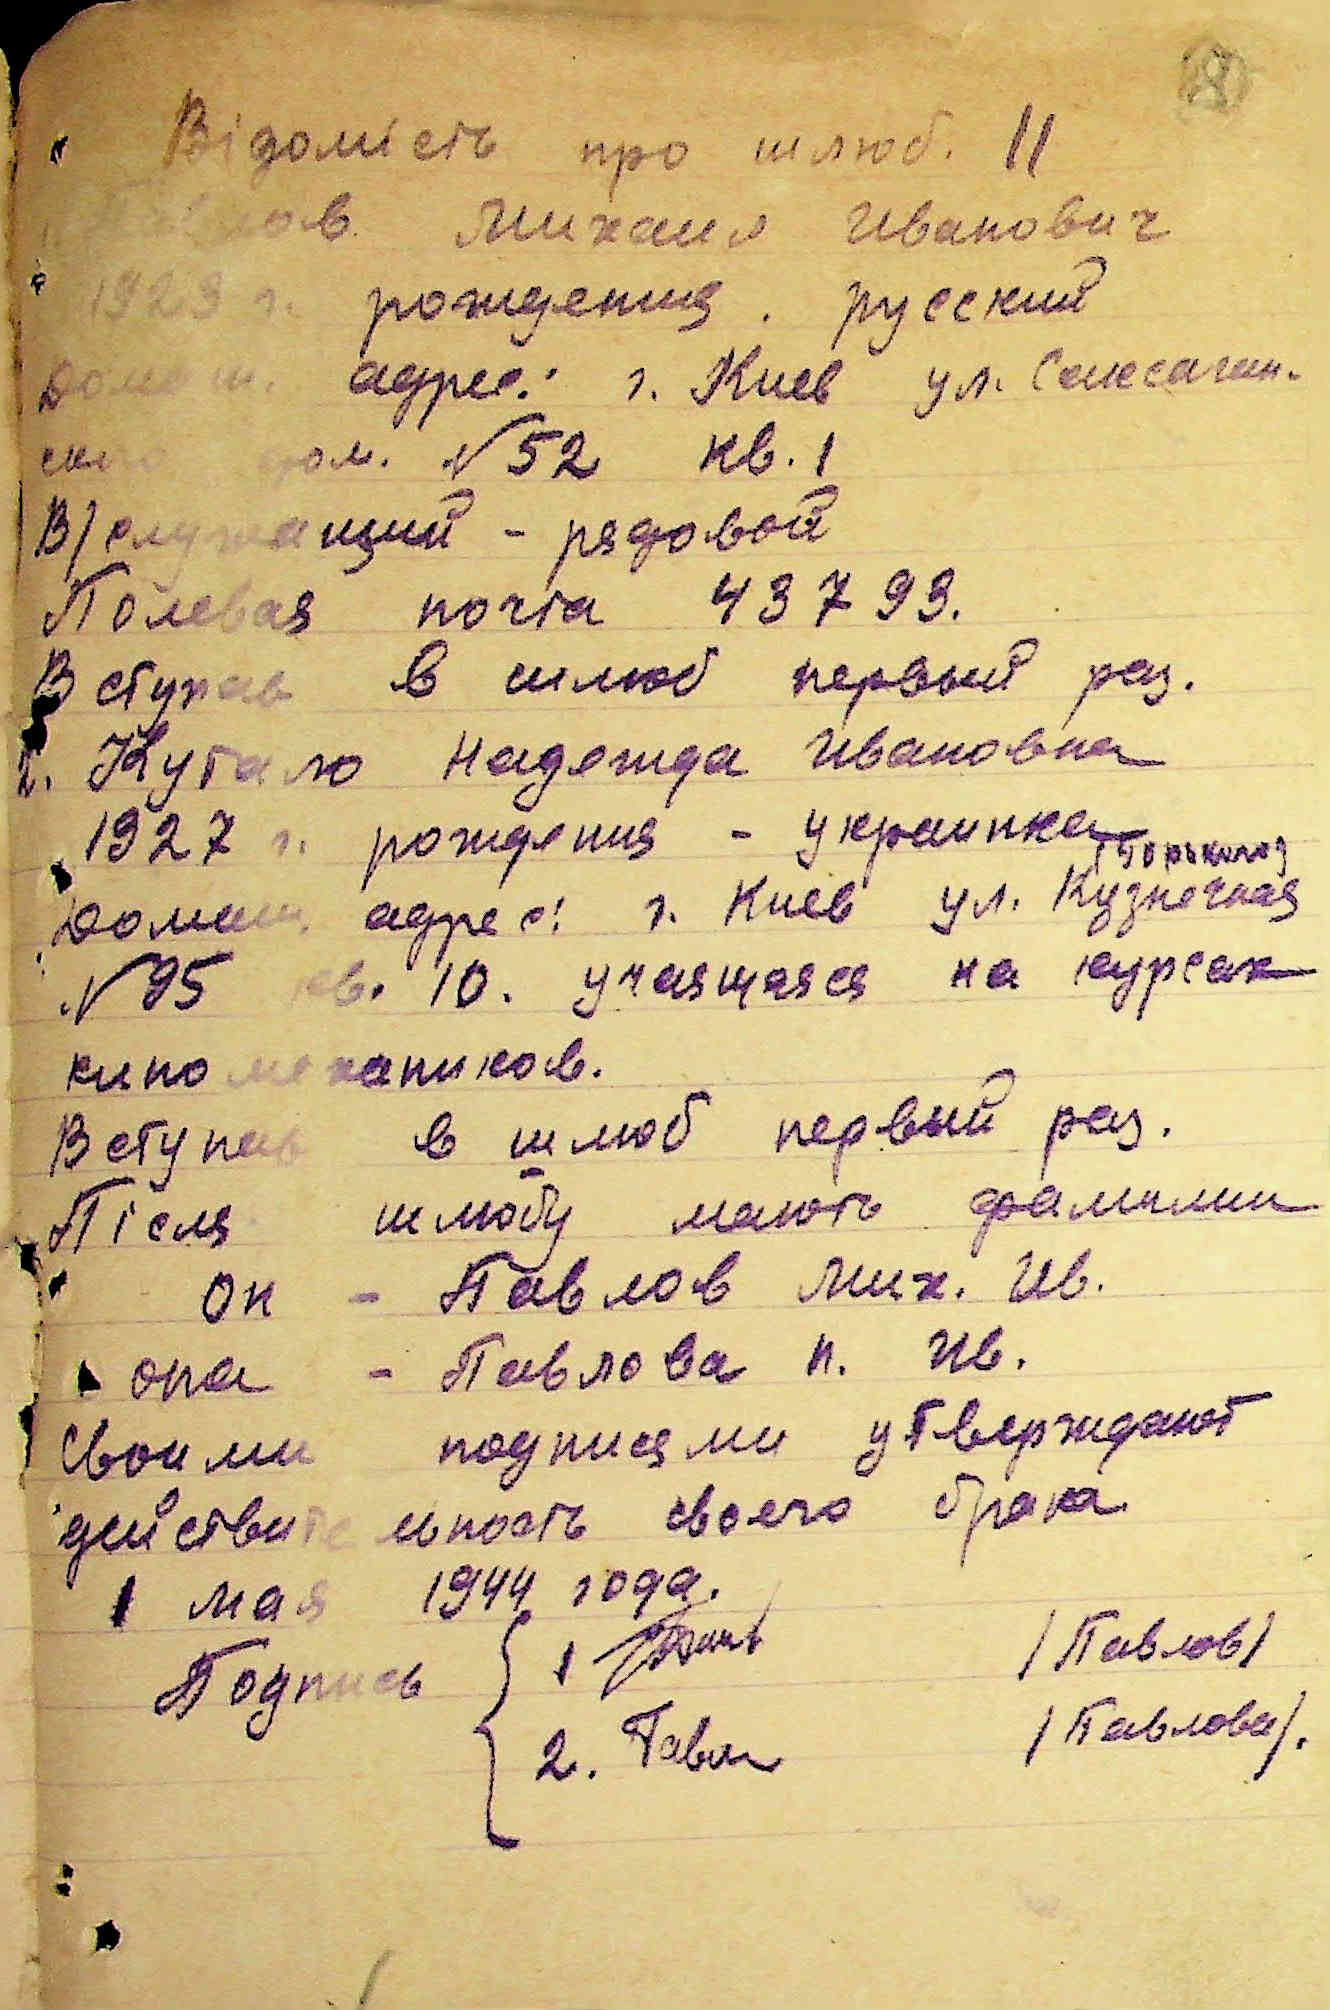 Відомість про шлюб. 11
Павлов Михаил Иванович
1923 г. рождения. русский
Домаш. адрес: г. Киев ул. Саксаган-
ского дом. №52 кв. 1
В/служащий - рядовой
Полевая почта 43793.
Вступав в шлюб первый раз.
2. Кутало Надежда Ивановна
1927 г. рождения - украинка
Горького
Домаш. адрес: г. Киев ул. Кузнечная
№95 кв. 10. учащаяся на курсах
киномехаников.
Вступав в шлюб первый раз.
Після шлюбу мають фамилии
Он - Павлов Мих. Ив.
она - Павлова Н. Ив.
Своими подписями утверждают
действительность своего брака
1 мая 1944 года.
Подпись 1 /Павлов/
2. Павл /Павлова/.